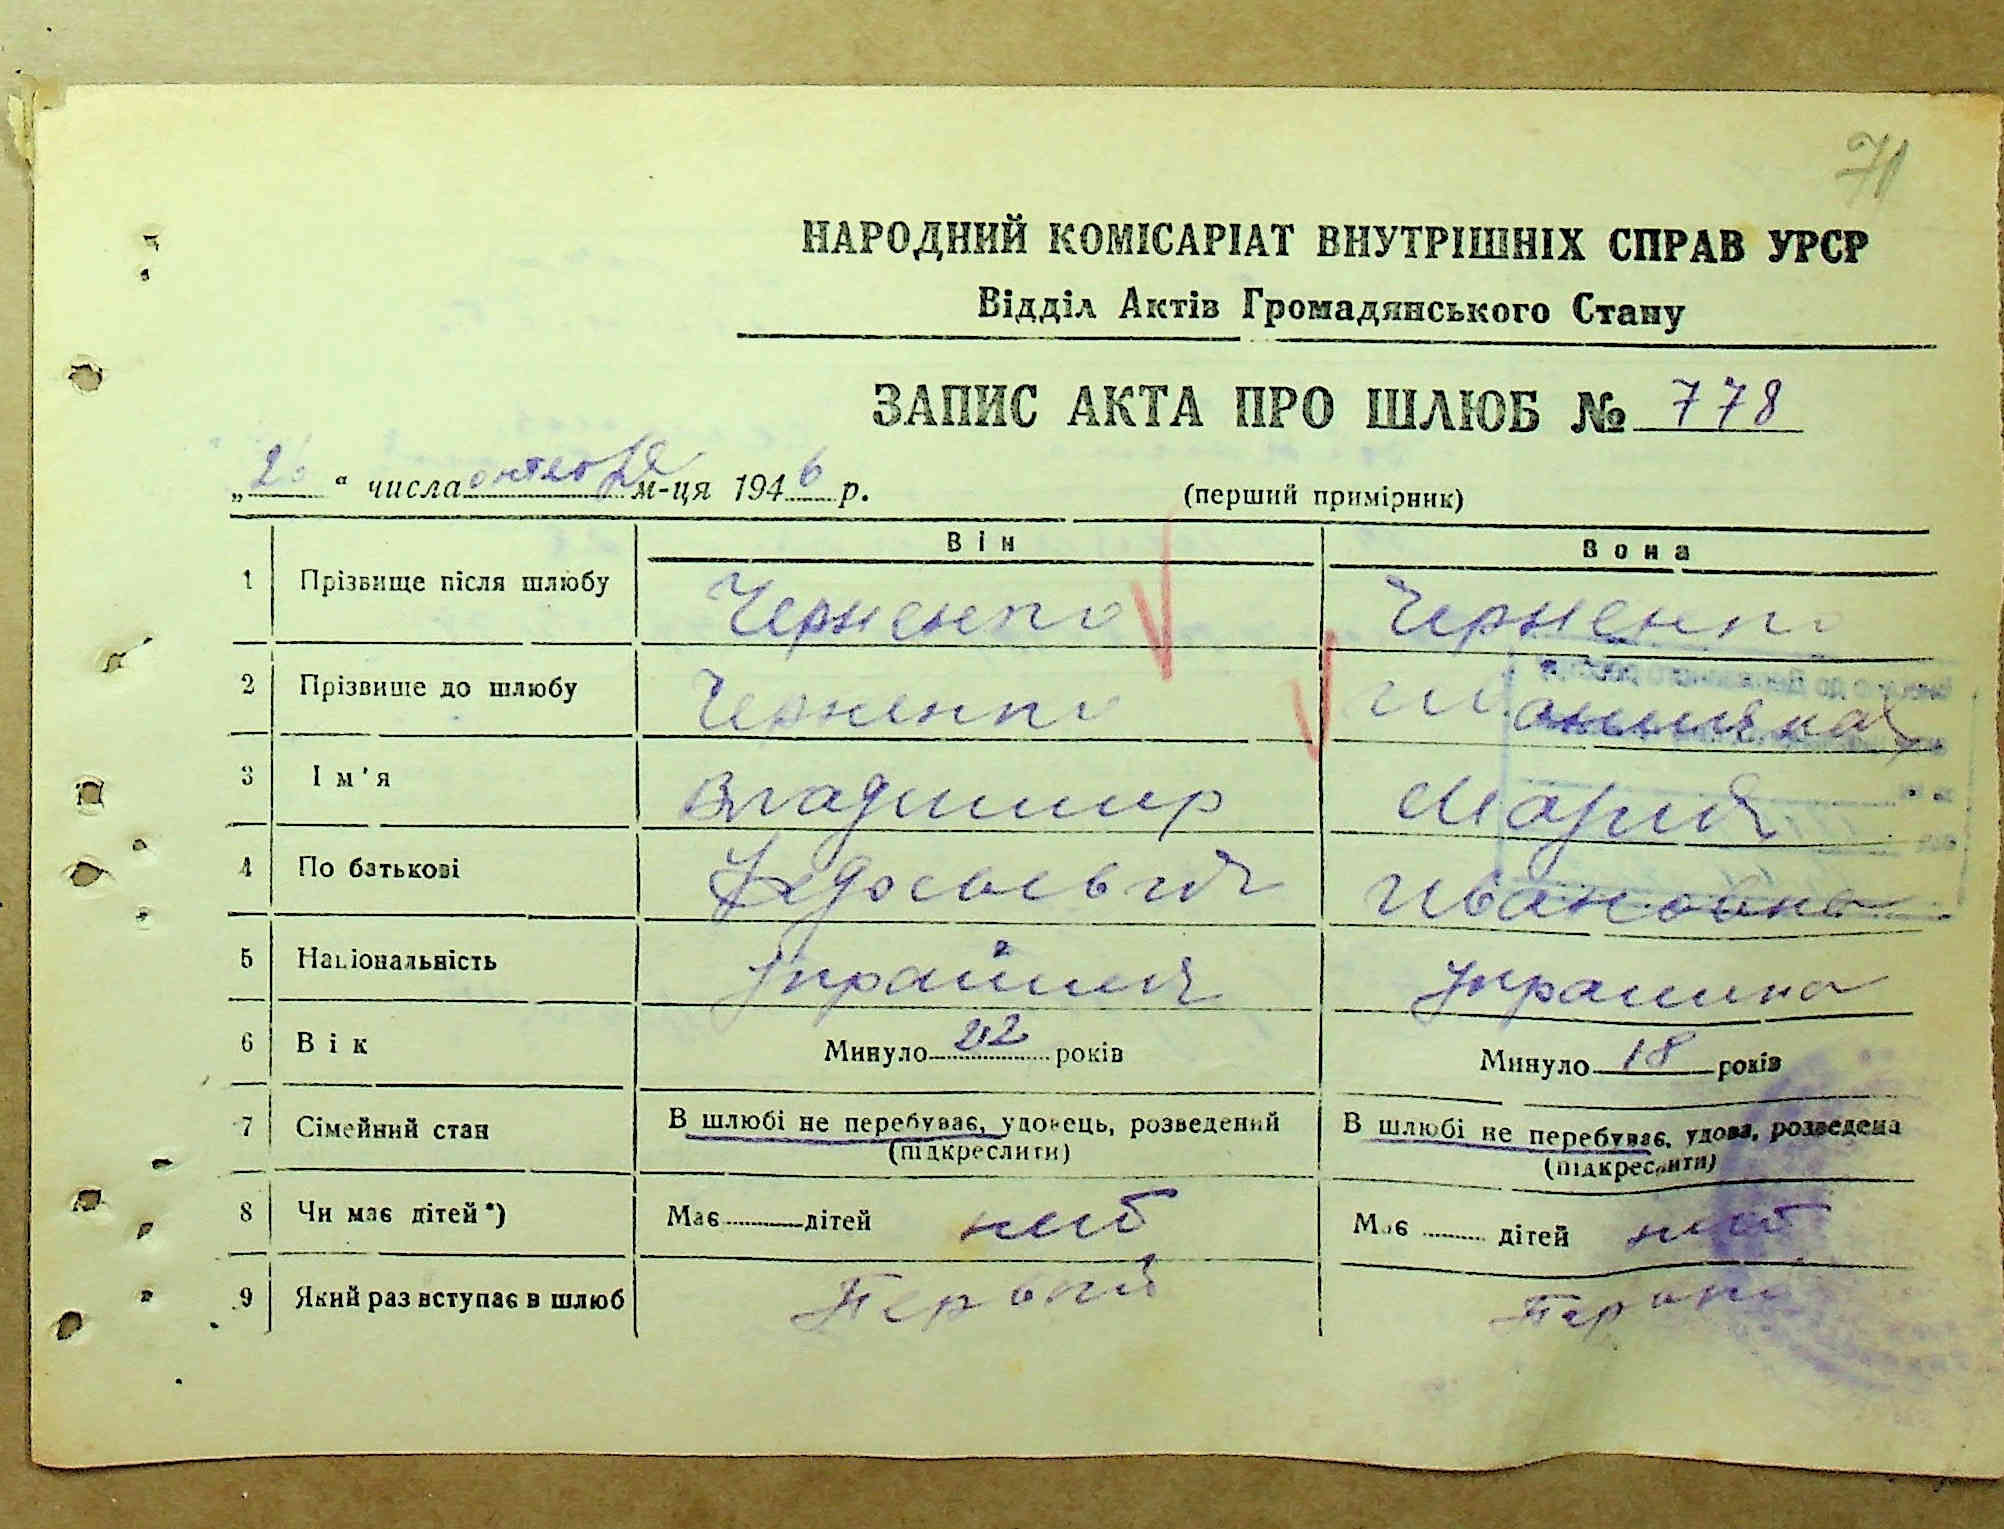 71
НАРОДНИЙ КОМІСАРІАТ ВНУТРІШНІХ СПРАВ УРСР
Відділ Актів Громадянського Стану
ЗАПИС АКТА ПРО ШЛЮБ № 778
„26“ числа октября м-ця 1946 р. (перший примірник)
Він Вона
1 Прізвище після шлюбу Черненко Черненко
2 Прізвище до шлюбу Черненко
3 Ім'я Владимир Мария
4 По батькові Ивановна
5 Національність Украинец Украинка
6 Вік Минуло 22 років Минуло 18 років
7 Сімейний стан В шлюбі не перебуває, удовець, розведений (підкреслити) В шлюбі не перебуває, удова, розведена (підкреслити)
8 Чи має дітей*) Має дітей нет Має дітей нет
9 Який раз вступає в шлюб Первый Первый